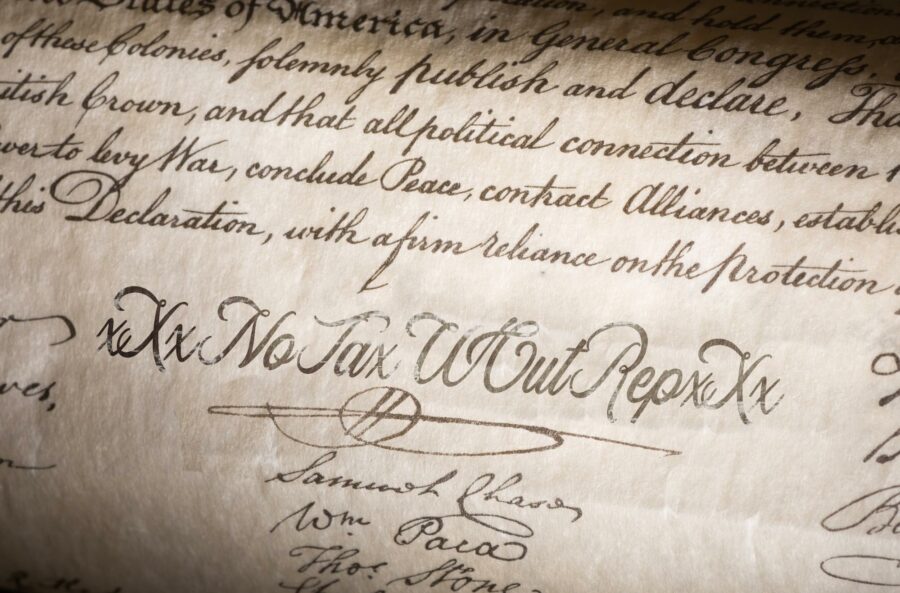 States of America, in General Congress,
of these Colonies, solemnly publish and declare, Tha
itish Crown, and that all political connection between
wer to levy War, conclude Peace, contract Alliances, establi
this Declaration, with a firm reliance on the Protection
xXxNoTaxWOutRepxXx
Samuel Chase
Wm Paca
Thos. Stone